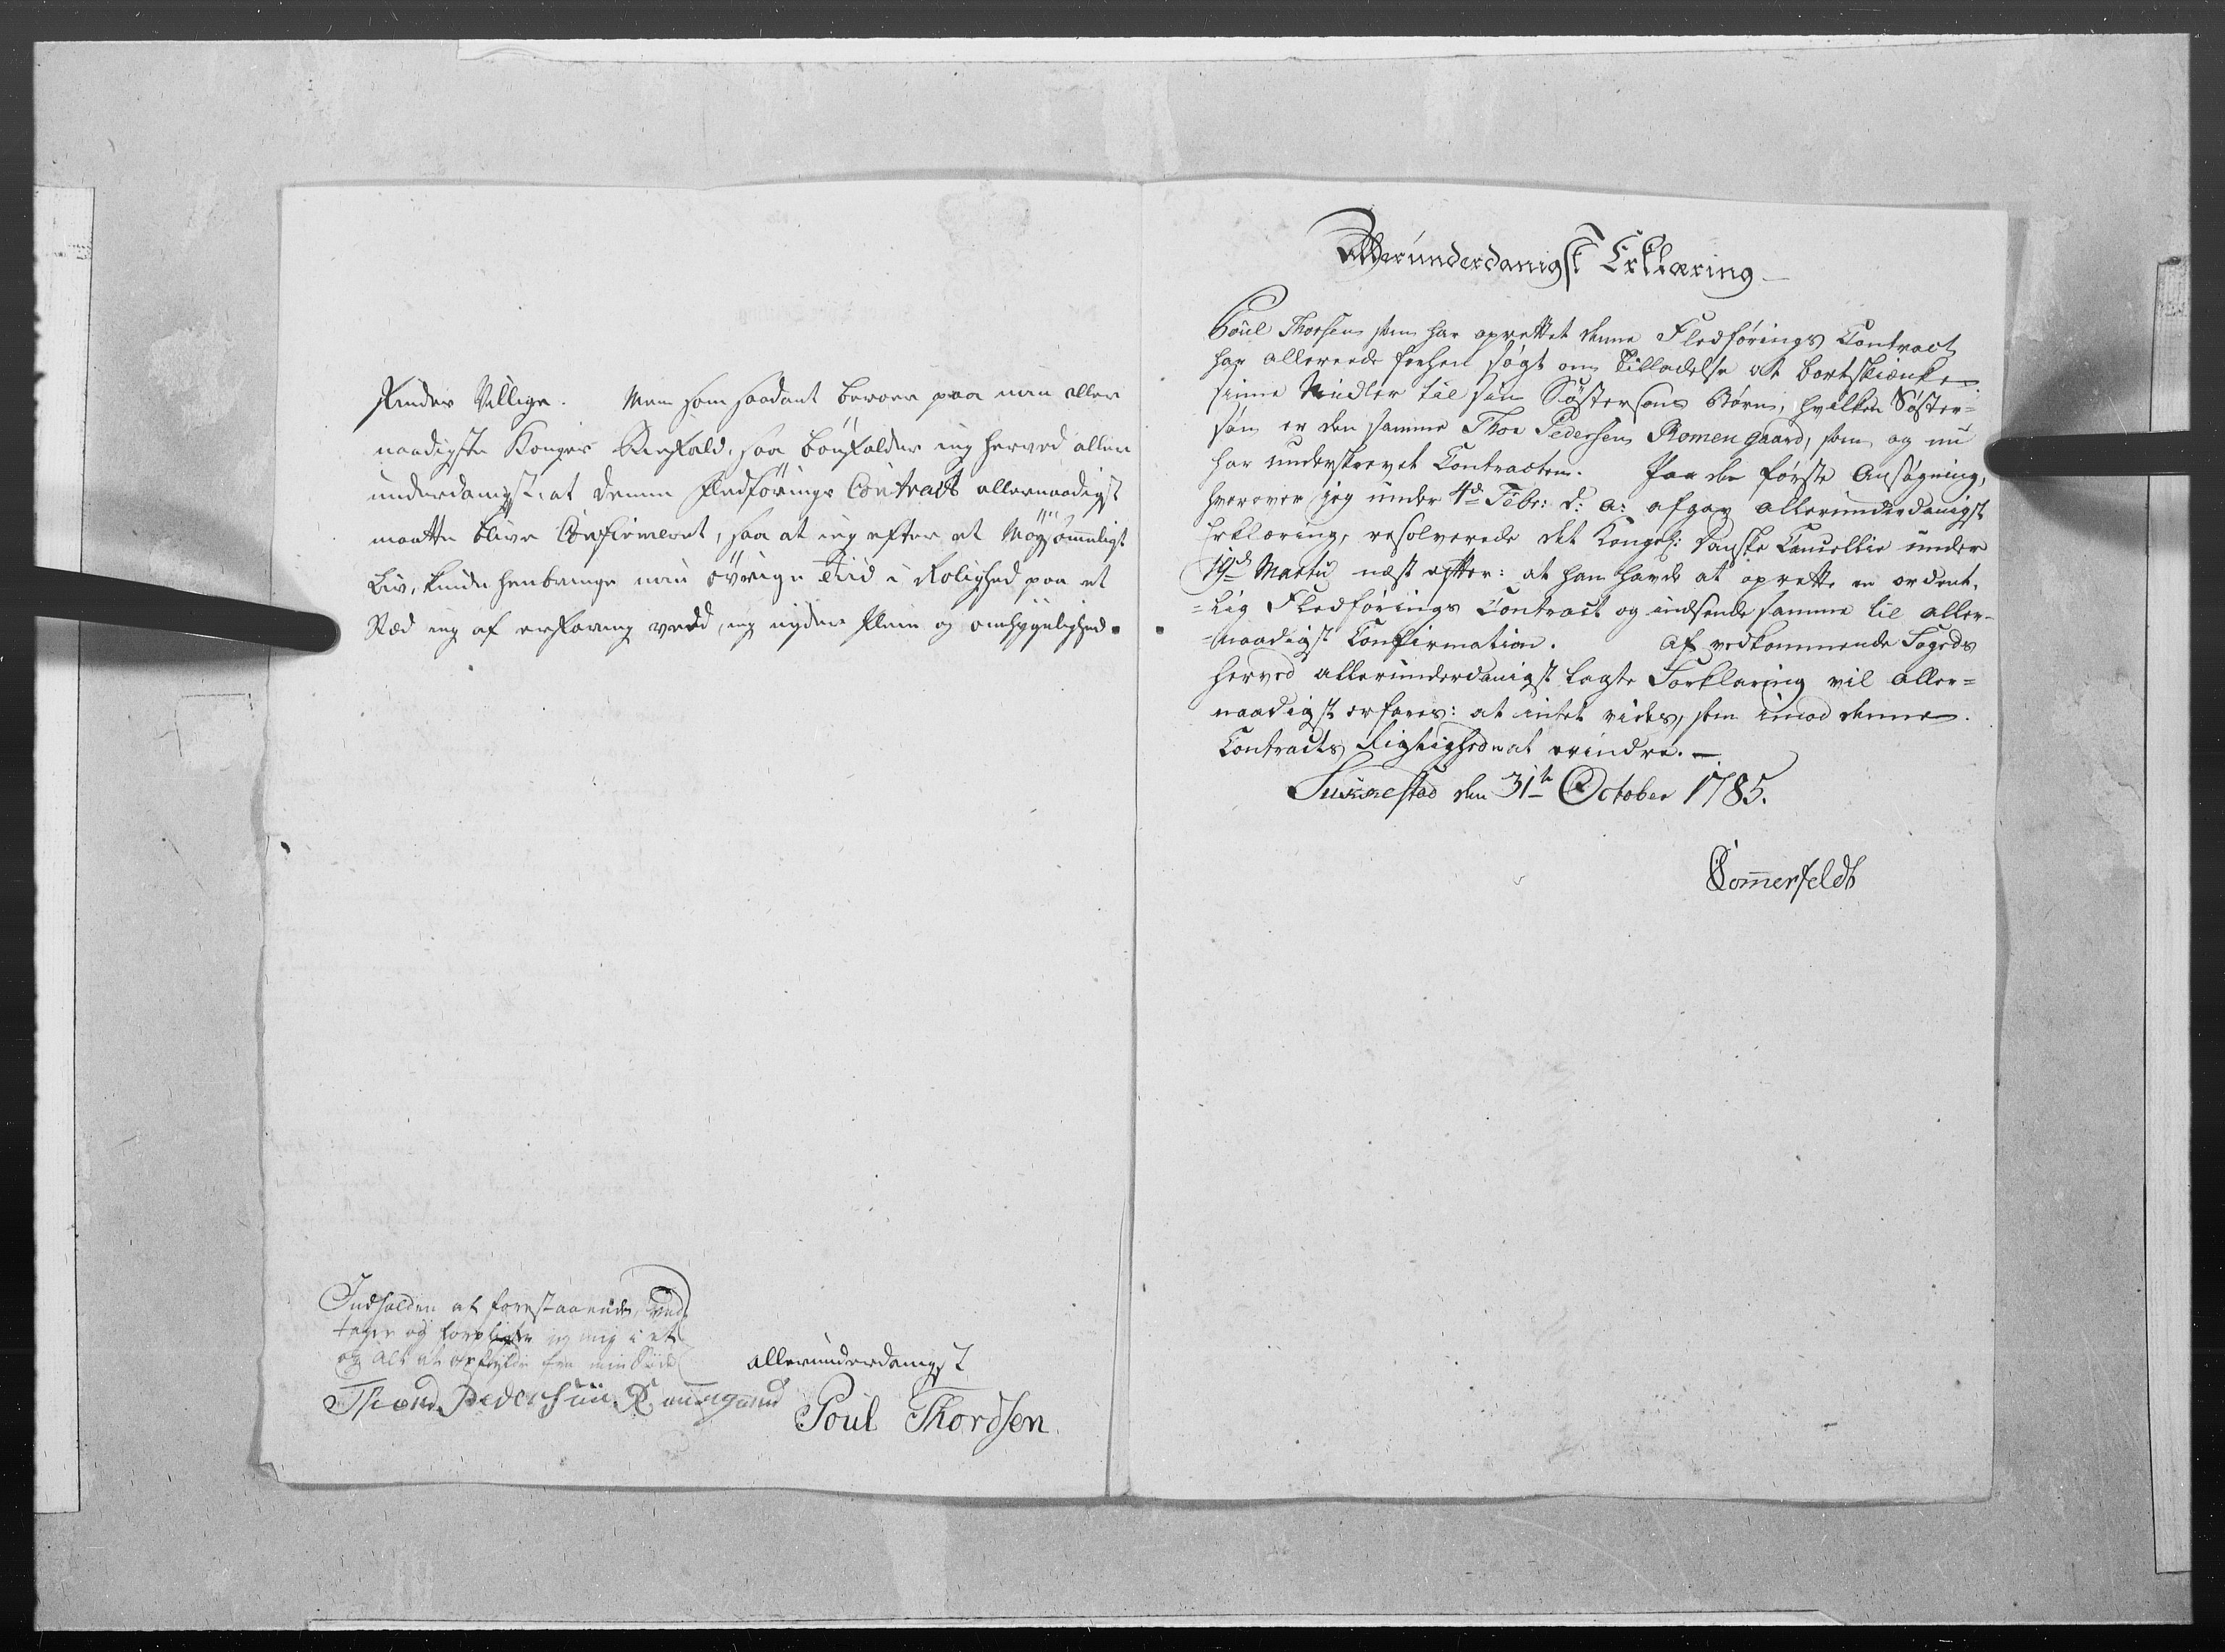 finder Billige. Men som saadant beroer paa min aller
naadigste Konges Biefald, saa bønfalder ieg herved aller
underdanigst, at denne Fledførings Contract allernaadigst
maatte blive Confirmeret, saa at ieg efter et Møysommeligt
Liv, kunde henbringe min øvrige Tiid i Rolighed paa et
Stæd ieg af erfaring veed, ieg nyder Pleie og omhyggelighed.
Indholden af forestaaende ved
tager og forpligter jeg mig i et
og Alt at opfylde fra min Side
Thord Pedersen Romengaard
allerunderdanigst
Poul Thordsen
Allerunderdanigst Erklæring
Poul Thorsen som har oprettet denne Fledførings Contract
har allereede forhen søgt om Tilladelse at bortskiænke
sinne Midler til sin Søstersøns Børn, hvilken Søster=
søn er den samme Thor Pedersen Romengaard, som og nu
har underskrevet Contracten. Paa den første Ansøgning,
hvorover jeg under 4de Febr: d: a: afgav allerunderdanigst
Erklæring, resolverede det Kongel: Danske Cancellie under
19de Martii næst efter: at han havde at oprette en ordent-
=lig Fledførings Contract og indsende samme til aller-
=naadigst Confirmation. Af vedkommende Fogeds
herved allerunderdanigst lagte Forklaring vil aller=
naadigst erfares: at intet vides, som imod denne
Contracts Rigtighed er at erindre. —
den 31te October 1785.
Sommerfeldt